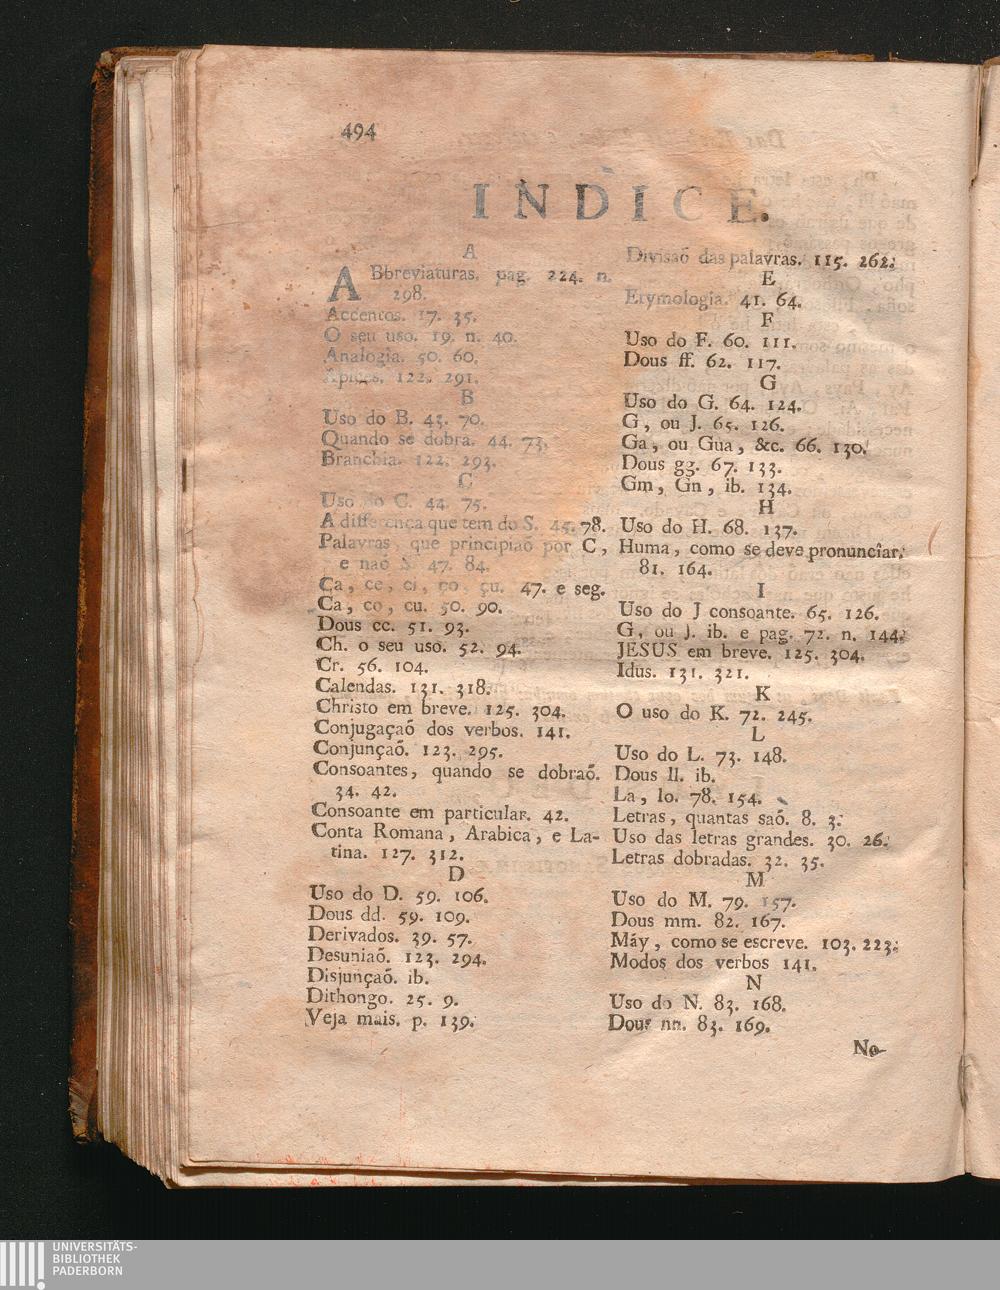 494
INDICE.
A
ABbreviaturas. pag. 224. n.
298.
Accentos. 17. 35.
O seu uso. 19. n. 40.
Analogia. 50. 60.
Apices. 122. 291.
B
Uso do B. 43. 70.
Quando se dobra. 44. 73.
Branchia. 122. 293.
C
Uso do C. 44. 75.
A differença que tem do S. 45. 78.
Palavras, que principiaõ por C,
e naõ S. 47. 84.
Ça, ce, ci, ço, çu. 47. e seg.
Ca, co, cu. 50. 90.
Dous cc. 51. 93.
Ch. o seu uso. 52. 94.
Cr. 56. 104.
Calendas. 131. 318.
Christo em breve. 125. 304.
Conjugaçaõ dos verbos. 141.
Conjunçaõ. 123. 295.
Consoantes, quando se dobraõ.
34. 42.
Consoante em particular. 42.
Conta Romana, Arabica, e La-
tina. 127. 312.
D
Uso do D. 59. 106.
Dous dd. 59. 109.
Derivados. 39. 57.
Desuniaõ. 123. 294.
Disjunçaõ. ib.
Dithongo. 25. 9.
Veja mais. p. 139.
Divisaõ das palavras. 115. 262.
E
Etymologia. 41. 64.
F
Uso do F. 60. 111.
Dous ff. 62. 117.
G
Uso do G. 64. 124.
G, ou J. 65. 126.
Ga, ou Gua, &c. 66. 130.
Dous gg. 67. 133.
Gm, Gn, ib. 134.
H
Uso do H. 68. 137.
Huma, como se deve pronunciar.
81. 164.
I
Uso do J consoante. 65. 126.
G, ou J. ib. e pag. 72. n. 144.
JESUS em breve. 125. 304.
Idus. 131. 321.
K
O uso do K. 72. 245.
L
Uso do L. 73. 148.
Dous ll. ib.
La, lo. 78. 154.
Letras, quantas saõ. 8. 3.
Uso das letras grandes. 30. 26.
Letras dobradas. 32. 35.
M
Uso do M. 79. 157.
Dous mm. 82. 167.
Máy, como se escreve. 103. 223.
Modos dos verbos 141.
N
Uso do N. 83. 168.
Dous nn. 83. 169.
No-
UNIVERSITÄTS-
BIBLIOTHEK
PADERBORN